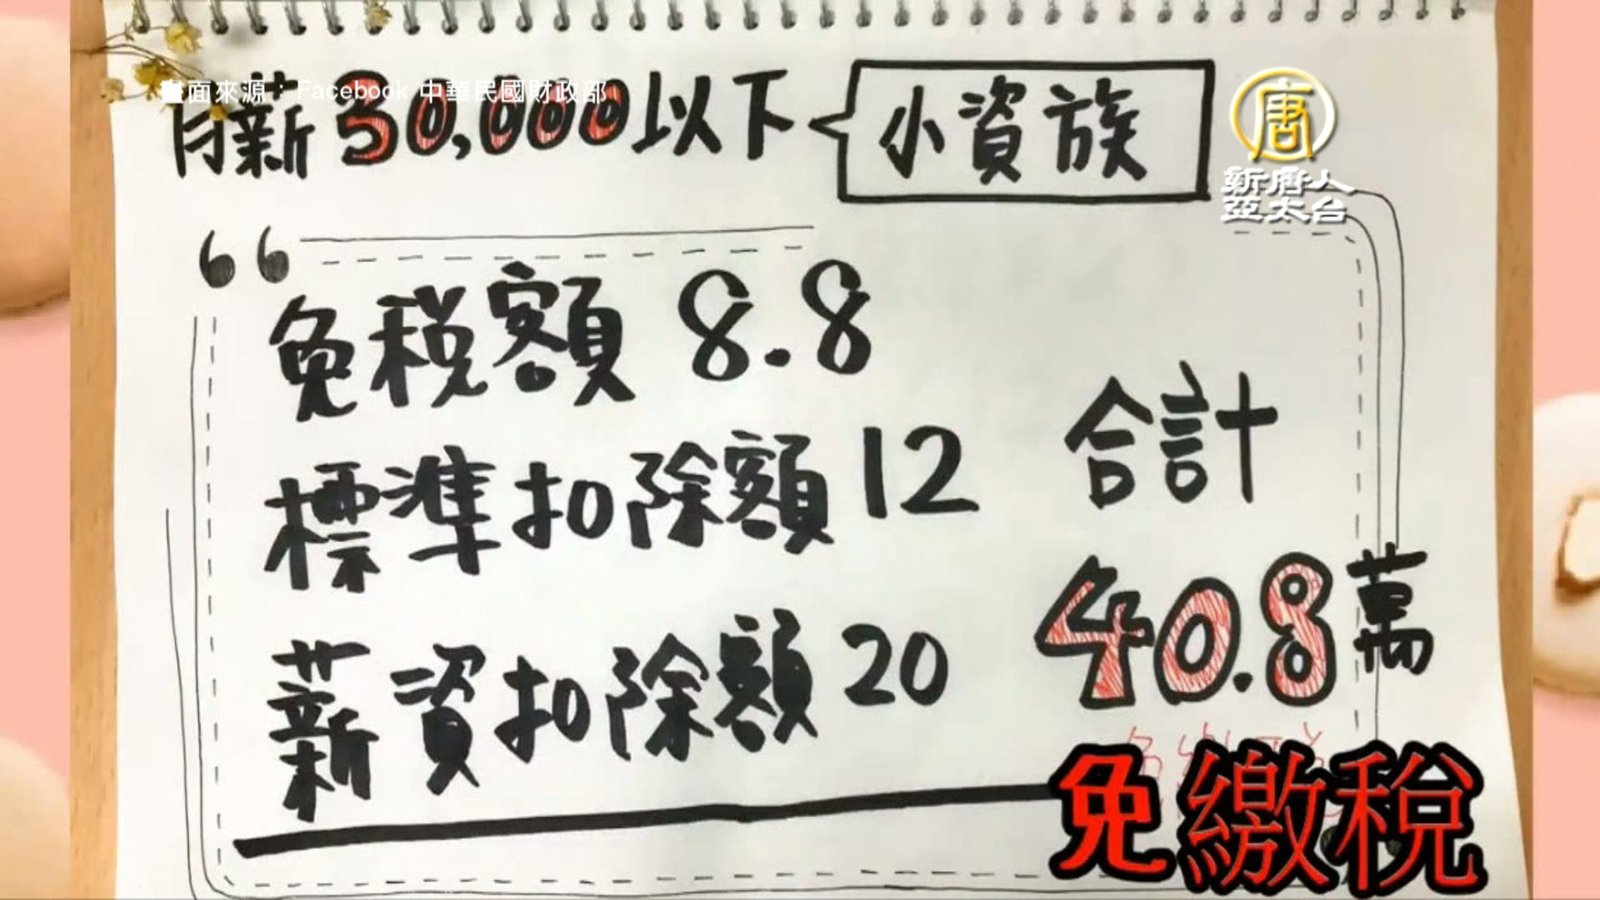 畫面來源：Facebook 中華民國財政部
月薪30,000以下
小資族
唐
新唐人
亞太台
免稅額 8.8
標準扣除額 12
合計
薪資扣除額 20
40.8萬
免繳稅